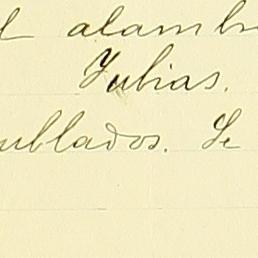 l alamb
Yubias.
ublados. Se